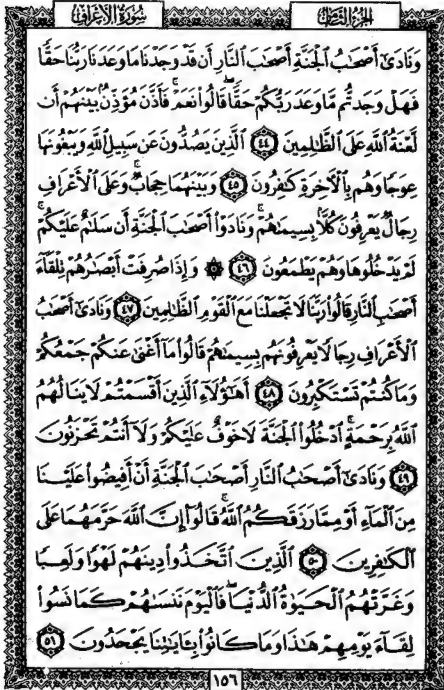 سُورَةُ الْأَعْرَافِ
الجزء الثامن
وَنَادَىٰ أَصْحَٰبُ الْجَنَّةِ أَصْحَٰبَ النَّارِ أَن قَدْ وَجَدْنَا مَا وَعَدَنَا رَبُّنَا حَقًّا
فَهَلْ وَجَدتُّم مَّا وَعَدَ رَبُّكُمْ حَقًّا ۖ قَالُوا۟ نَعَمْ ۚ فَأَذَّنَ مُؤَذِّنٌۢ بَيْنَهُمْ أَن
لَّعْنَةُ اللَّهِ عَلَى الظَّٰلِمِينَ ٤٤ الَّذِينَ يَصُدُّونَ عَن سَبِيلِ اللَّهِ وَيَبْغُونَهَا
عِوَجًا وَهُم بِالْأَخِرَةِ كَٰفِرُونَ ٤٥ وَبَيْنَهُمَا حِجَابٌ ۚ وَعَلَى الْأَعْرَافِ
رِجَالٌ يَعْرِفُونَ كُلًّۢا بِسِيمَىٰهُمْ ۚ وَنَادَوْا۟ أَصْحَٰبَ الْجَنَّةِ أَن سَلَٰمٌ عَلَيْكُمْ ۚ
لَمْ يَدْخُلُوهَا وَهُمْ يَطْمَعُونَ ٤٦ ۞ وَإِذَا صُرِفَتْ أَبْصَٰرُهُمْ تِلْقَآءَ
أَصْحَٰبِ النَّارِ قَالُوا۟ رَبَّنَا لَا تَجْعَلْنَا مَعَ الْقَوْمِ الظَّٰلِمِينَ ٤٧ وَنَادَىٰٓ أَصْحَٰبُ
الْأَعْرَافِ رِجَالًا يَعْرِفُونَهُم بِسِيمَىٰهُمْ قَالُوا۟ مَآ أَغْنَىٰ عَنكُمْ جَمْعُكُمْ
وَمَا كُنتُمْ تَسْتَكْبِرُونَ ٤٨ أَهَٰٓؤُلَآءِ الَّذِينَ أَقْسَمْتُمْ لَا يَنَالُهُمُ
اللَّهُ بِرَحْمَةٍ ۚ ادْخُلُوا۟ الْجَنَّةَ لَا خَوْفٌ عَلَيْكُمْ وَلَآ أَنتُمْ تَحْزَنُونَ
٤٩ وَنَادَىٰٓ أَصْحَٰبُ النَّارِ أَصْحَٰبَ الْجَنَّةِ أَنْ أَفِيضُوا۟ عَلَيْنَا
مِنَ الْمَآءِ أَوْ مِمَّا رَزَقَكُمُ اللَّهُ ۚ قَالُوٓا۟ إِنَّ اللَّهَ حَرَّمَهُمَا عَلَى
الْكَٰفِرِينَ ٥٠ الَّذِينَ اتَّخَذُوا۟ دِينَهُمْ لَهْوًا وَلَعِبًا
وَغَرَّتْهُمُ الْحَيَوٰةُ الدُّنْيَا ۚ فَالْيَوْمَ نَنسَىٰهُمْ كَمَا نَسُوا۟
لِقَآءَ يَوْمِهِمْ هَٰذَا وَمَا كَانُوا۟ بِـَٔايَٰتِنَا يَجْحَدُونَ ٥١
١٥٦